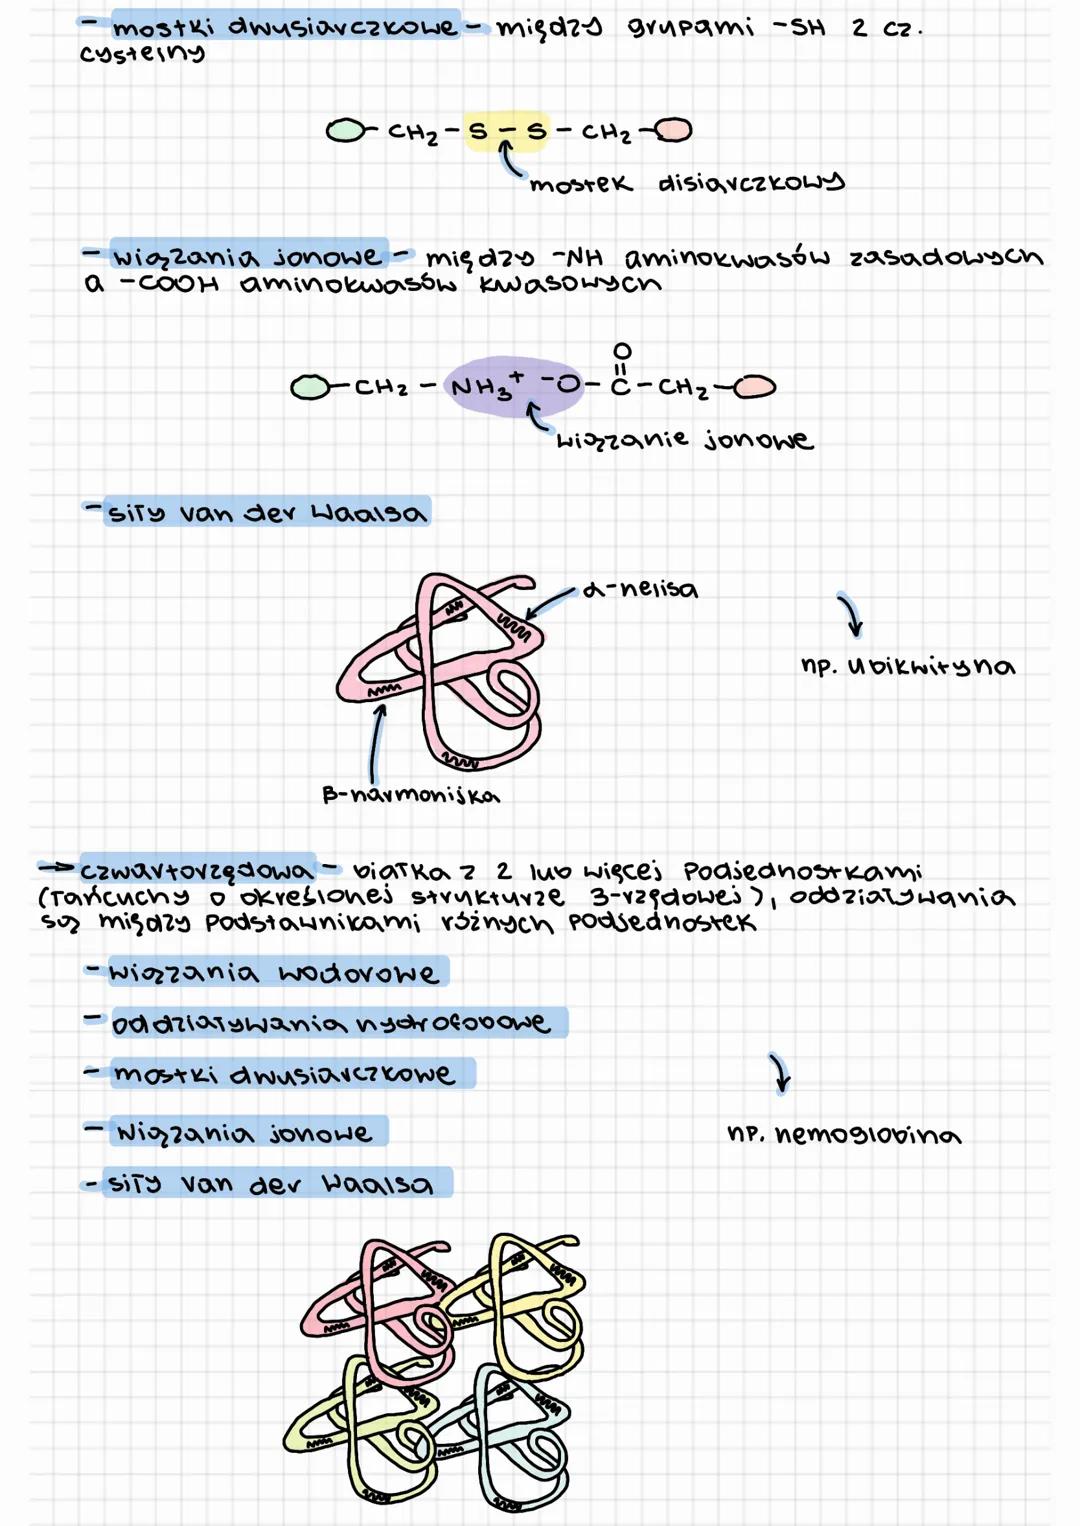 - mostki dwusiarczkowe - między grupami -SH 2 cz.
cysteiny
CH2 - S - S - CH2
mostek disiarczkowy
- wiązania jonowe - między -NH aminokwasów zasadowych
a -COOH aminokwasów kwasowych
O
||
-CH2 - NH3+ -O - C - CH2 -
wiązanie jonowe
- siły van der Waalsa
α-helisa
np. ubikwityna
β-harmonijka
→ czwartorzędowa - białka z 2 lub więcej podjednostkami
(łańcuchy o określonej strukturze 3-rzędowej), oddziaływania
są między podstawnikami różnych podjednostek
- wiązania wodorowe
- oddziaływania hydrofobowe
- mostki dwusiarczkowe
- wiązania jonowe
np. hemoglobina
- siły van der Waalsa